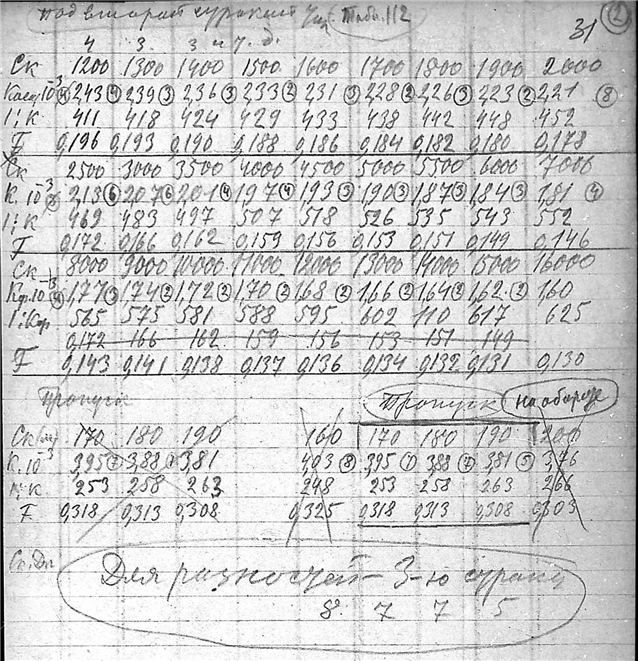 под второй строкой Табл. 112
31 2
4 3 3 и т. д.
Ск 1200 1300 1400 1500 1600 1700 1800 1900 2000
2,43 4 2,39 3 2,36 3 2,33 2 2,31 3 2,28 2 2,26 3 2,23 2 2,21 8
1:К 411 418 424 429 433 438 442 448 452
F 0,196 0,193 0,190 0,188 0,186 0,184 0,182 0,180 0,178
Ск 2500 3000 3500 4000 4500 5000 5500 6000 7000
К.10³ 2,13 6 2,07 6 2,01 4 1,97 4 1,93 3 1,90 3 1,87 3 1,84 3 1,81 4
1:К 469 483 497 507 518 526 535 543 552
F 0,172 0,166 0,162 0,159 0,156 0,153 0,151 0,149 0,146
Ск 8000 9000 10000 11000 12000 13000 14000 15000 16000
Кср10³ 1,77 3 1,74 2 1,72 2 1,70 2 1,68 2 1,66 2 1,64 2 1,62 2 1,60
1:Кср 565 575 581 588 595 602 110 617 625
0,172 166 162 159 156 153 151 149
F 0,143 0,141 0,138 0,137 0,136 0,134 0,132 0,131 0,130
Пропуск Пропуск на обороте
170 180 190 160 170 180 190 200
К.10³ 3,95 7 3,88 3,81 4,03 8 3,95 7 3,88 7 3,81 5 3,76
1:К 253 258 263 248 253 258 263 266
F 0,318 0,313 0,308 0,325 0,318 0,313 0,308 0,303
Для разностей 3-ю строку
8 7 7 5